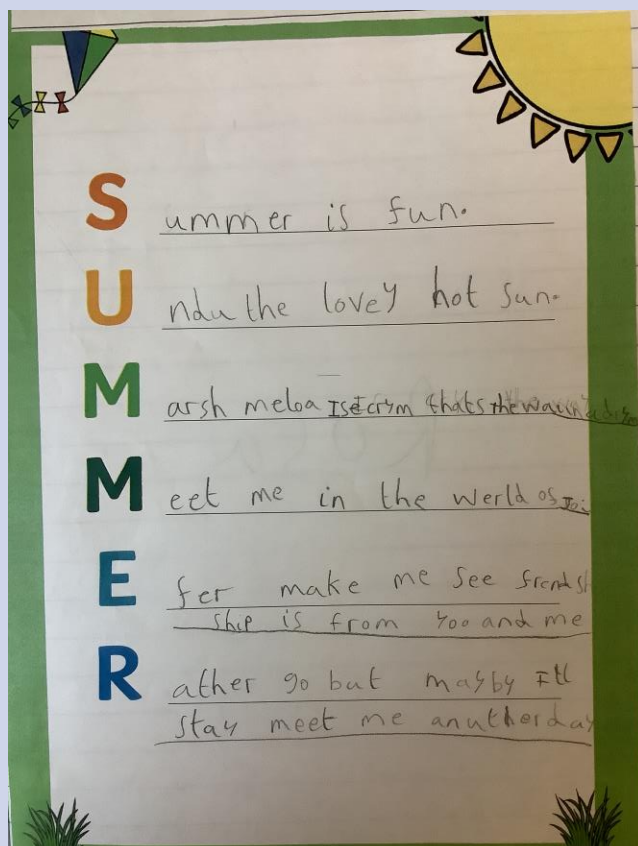 Summer is fun.
Undu the lovey hot sun.
Marsh meloa Isecrym thats the
Meet me in the werld of Joi
Efer make me see frend sh
ship is from yoo and me
Rather go but mayby Itl
stay meet me anutherday